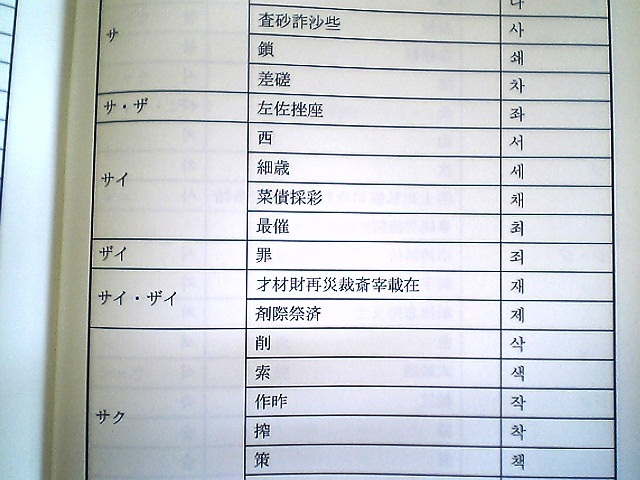 サ 査砂詐沙些 사
鎖 쇄
差磋 차
サ・ザ 左佐挫座 좌
西 서
サイ 細歳 세
菜債採彩 채
最催 최
ザイ 罪 죄
サイ・ザイ 才材財再災裁斎宰載在 재
剤際祭済 제
削 삭
索 색
サク 作昨 작
搾 착
策 책